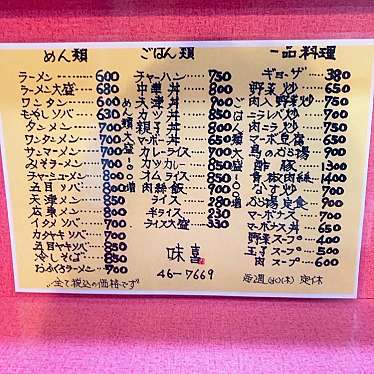 めん類
ラーメン 600
ラーメン大盛 680
ワンタン 600
もやしソバ 630
タンメン 700
ワンタンメン 700
サンマーメン 700
みそラーメン 700
チャーシューメン 800
五目ソバ 800
天津メン 800
広東メン 800
イタメソバ 700
カタヤキソバ 800
五目ヤキソバ 800
冷しそば 850
おふくろラーメン 700
めん類大盛100増
ごはん類
チャーハン 750
中華丼 800
天津丼 800
カツ丼 850
親子丼 800
マーボ丼
カレーライス
カツカレー
オムライス
肉絲飯 700
ライス 280
半ライス 230
ライス大盛 330
味喜
46-7669
ごはん類大盛100増
一品料理
ギョーザ 380
野菜炒 650
肉入野菜炒 700
ニラレバ炒 700
肉ニラ炒 700
マーボ豆腐 700
鳥のぶつ湯
酢豚 1300
青椒肉絲 1100
なす炒 700
ぶつ湯定食 900
マーボナス 700
マーボナス丼
野菜スープ 400
玉子スープ 500
肉スープ 600
全て税込の価格です
毎週(木)定休